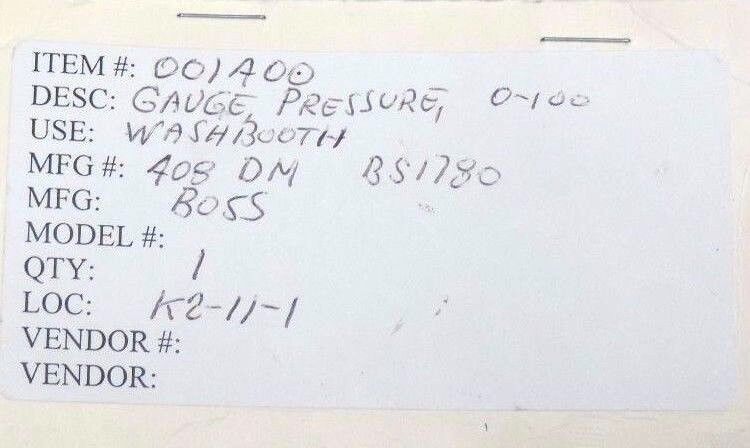 ITEM #: 001A00
DESC: GAUGE, PRESSURE, 0-100
USE: WASHBOOTH
MFG #: 408 DM BS1780
MFG: BOSS
MODEL #:
QTY: 1
LOC: K2-11-1
VENDOR #:
VENDOR: